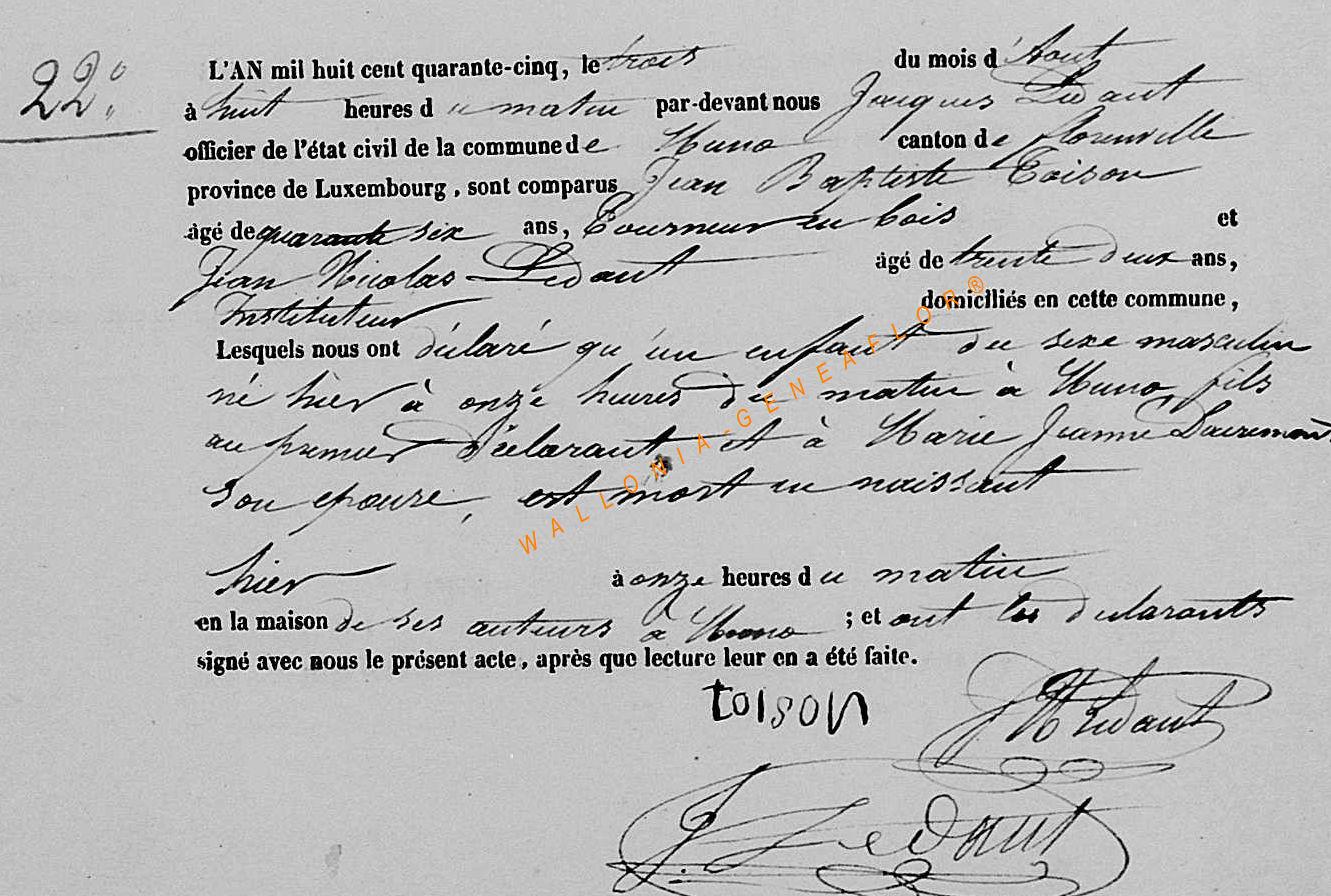 22.°
L'AN mil huit cent quarante-cinq, le trois du mois d'Aout
à huit heures du matin par-devant nous Jacques Ledant
officier de l'état civil de la commune de Muno canton de florenville
province de Luxembourg, sont comparus Jean Baptiste Toison
âgé de quarante six ans, Tourneur en bois et
Jean Nicolas Ledant âgé de trente deux ans,
Instituteur domiciliés en cette commune,
Lesquels nous ont déclaré qu'un enfant du sexe masculin
né hier à onze heures du matin à Muno, fils
au premier Déclarant et à Marie Jeanne
son epouse, est mort en naissant
hier à onze heures du matin
en la maison de ses auteurs à Muno ; et ont les declarants
signé avec nous le présent acte, après que lecture leur en a été faite.
toison JNLedant
J. Ledant
WALLONIA-GENEAFLOR®